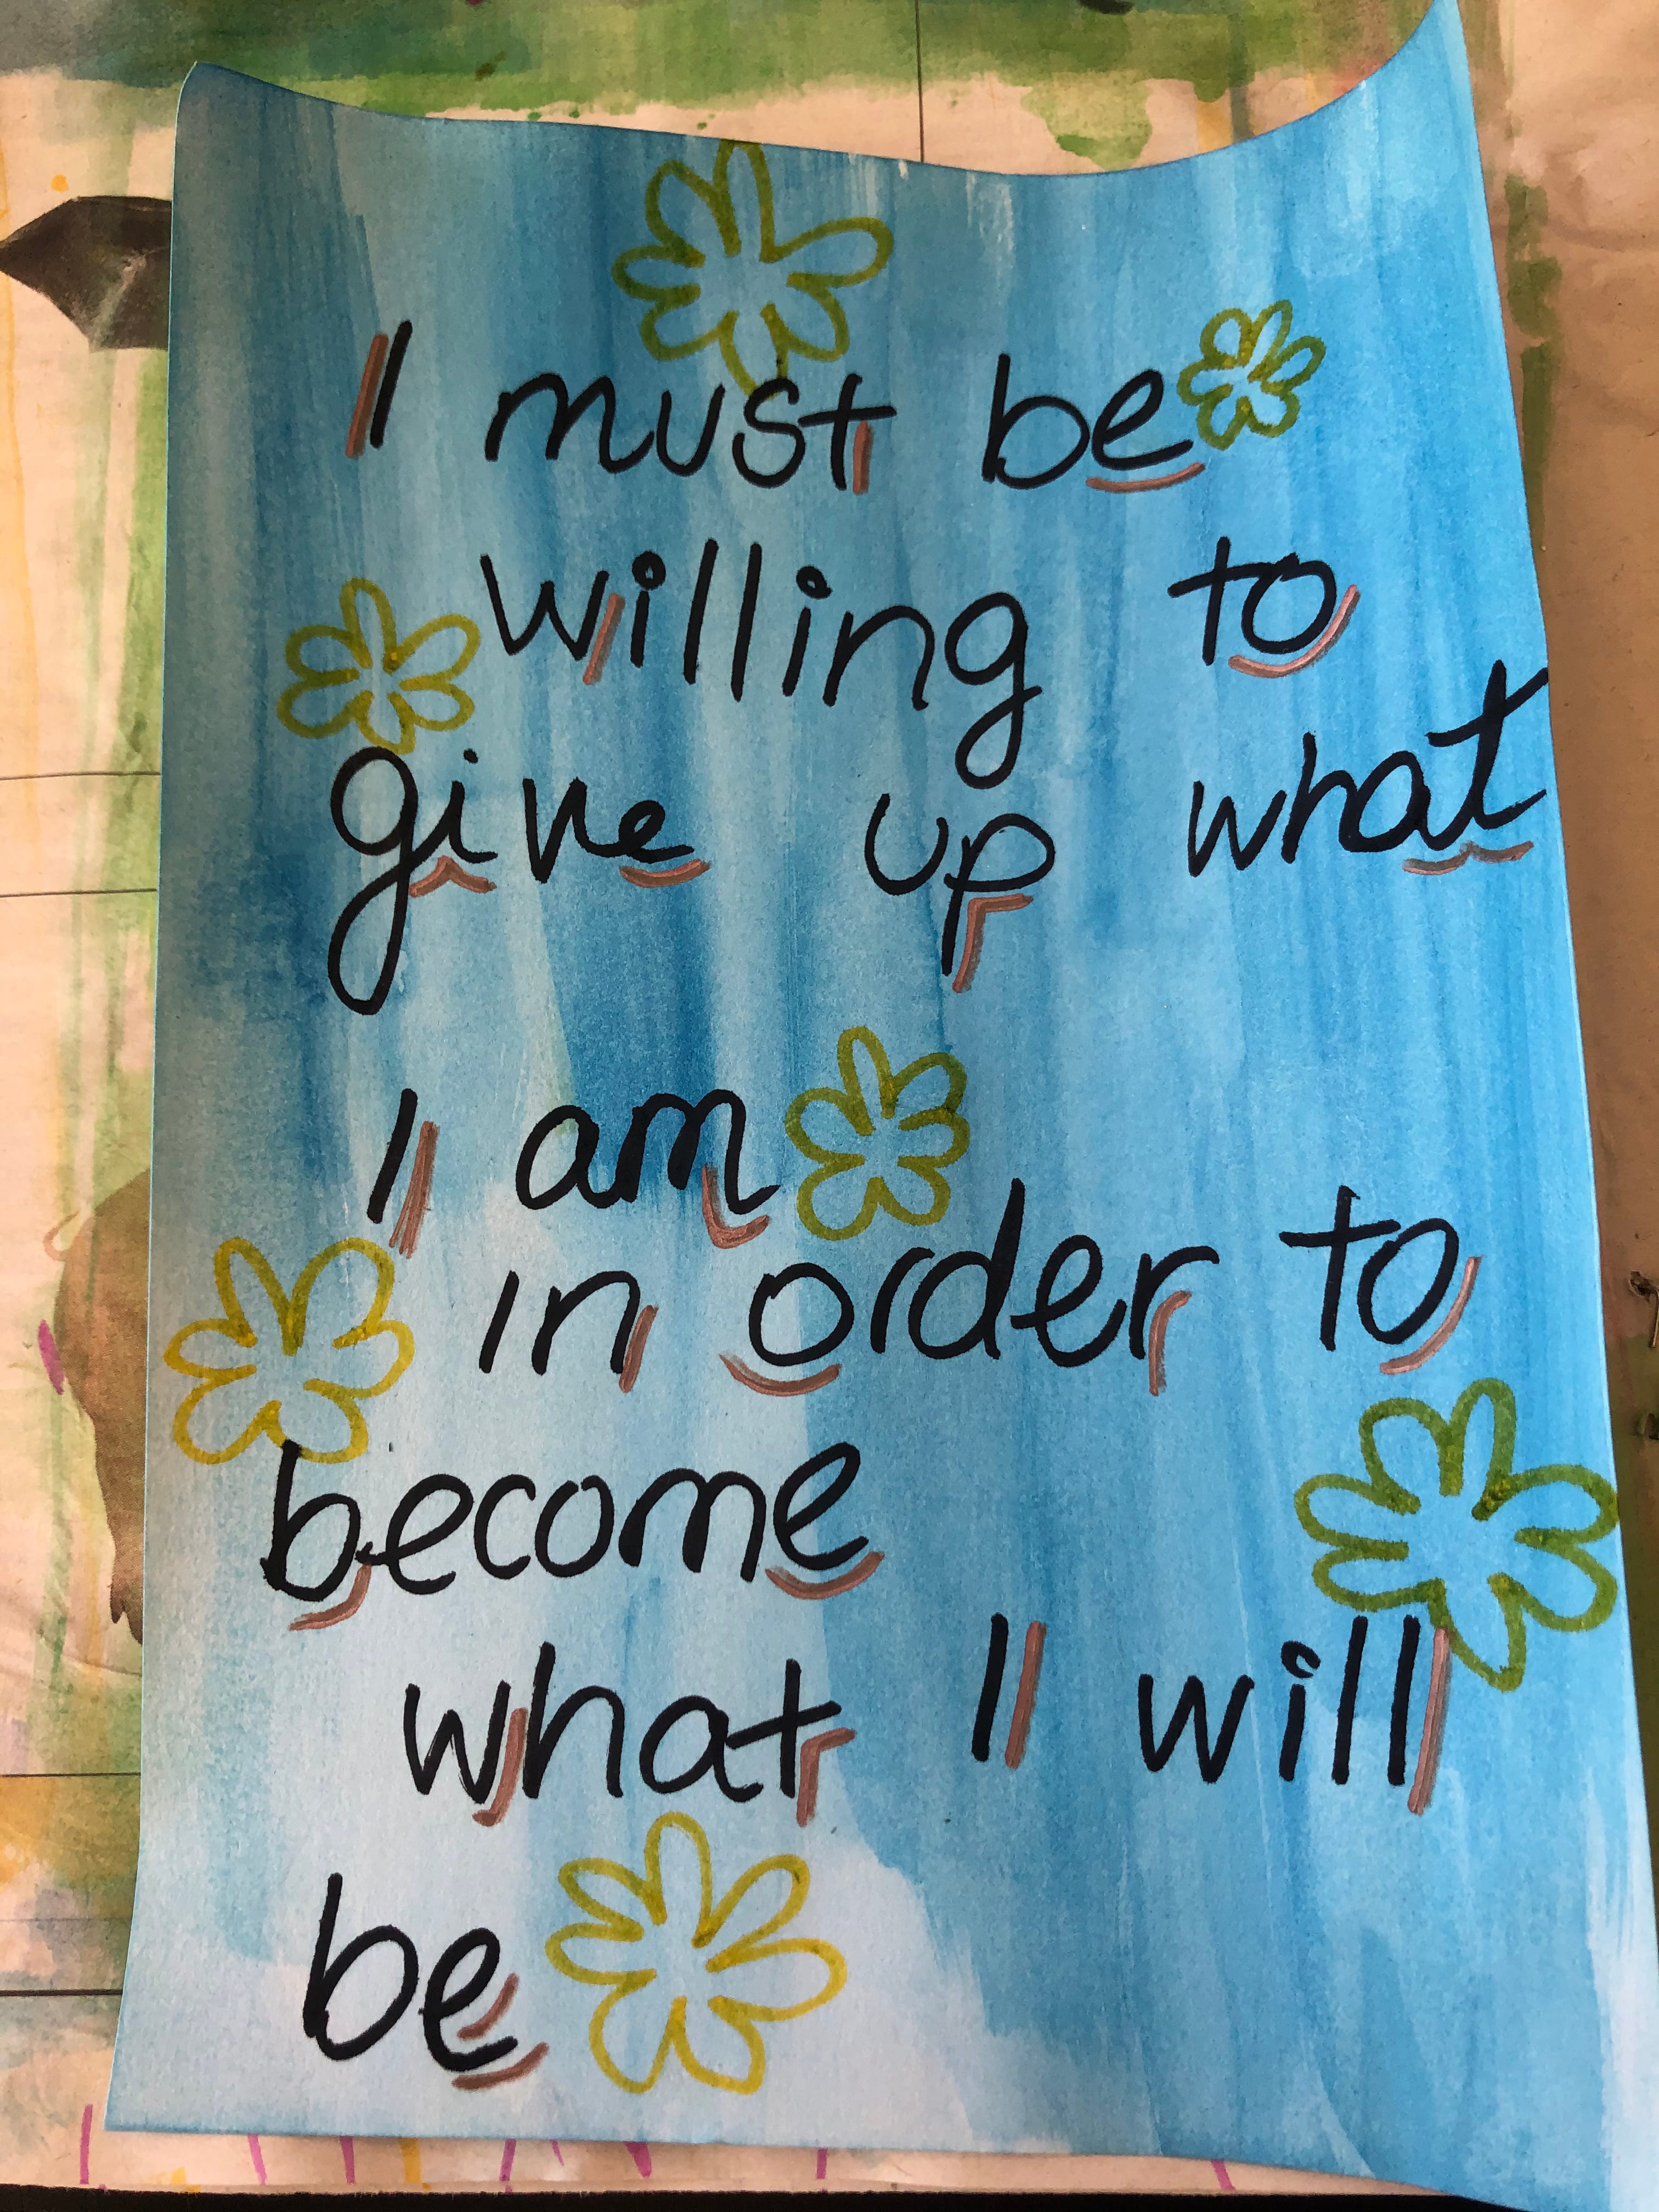 I must be
willing to
give up what
I am
in order to
become
what I will
be